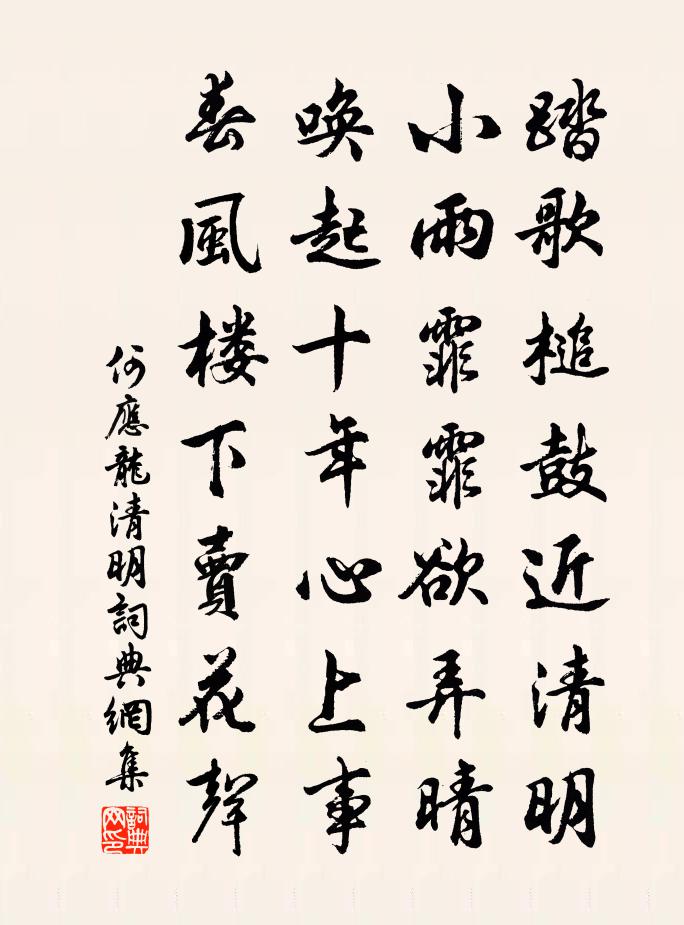 踏歌槌鼓近清明
小雨霏霏欲弄晴
唤起十年心上事
春風楼下賣花聲
何應龍清明詞典網集
詞典网印